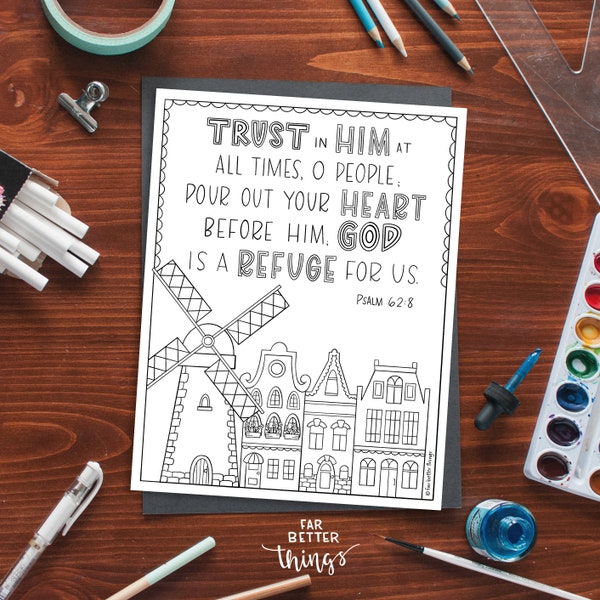 TRUST IN HIM AT
ALL TIMES, O PEOPLE;
POUR OUT YOUR HEART
BEFORE HIM; GOD
IS A REFUGE FOR US.
PSALM 62:8
© far better things
FAR
BETTER
things